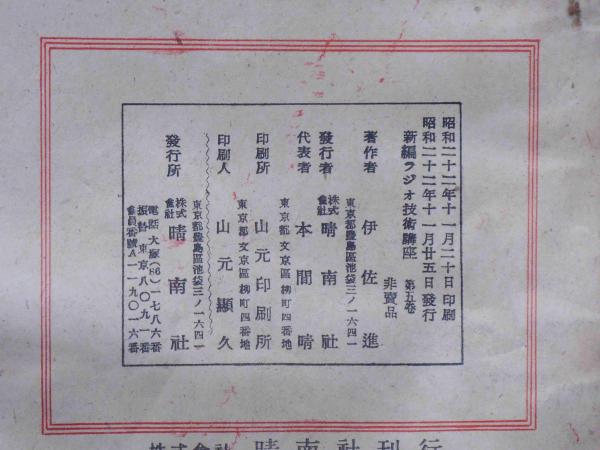 昭和二十二年十一月二十日印刷
昭和二十二年十一月廿五日發行
新編ラジオ技術講座 第五卷
非賣品
著作者 伊佐進
東京都豊島區池袋三ノ一六四一
發行者 株式會社 晴南社
代表者 本間晴
東京都文京區柳町四番地
印刷所 山元印刷所
東京都文京區柳町四番地
印刷人 山元顯久
東京都豊島區池袋三ノ一六四一
發行所 株式會社 晴南社
電話大塚(86)一七八六番
振替東京八〇九一番
會員番號A一一九〇一六番
株式會社 晴南社刊行